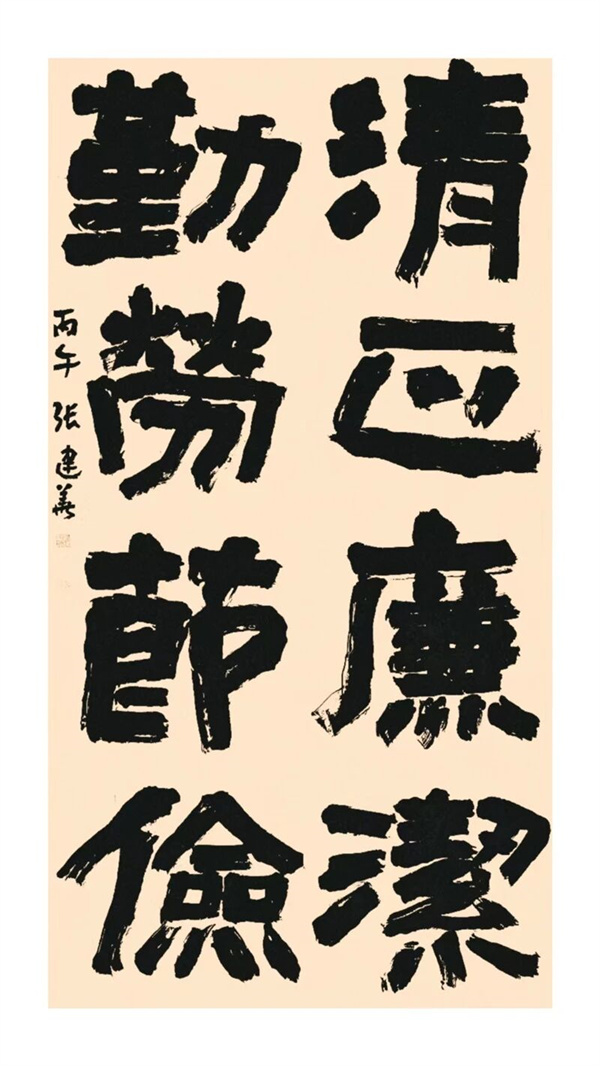 清正廉潔
勤勞節儉
丙午 张建義